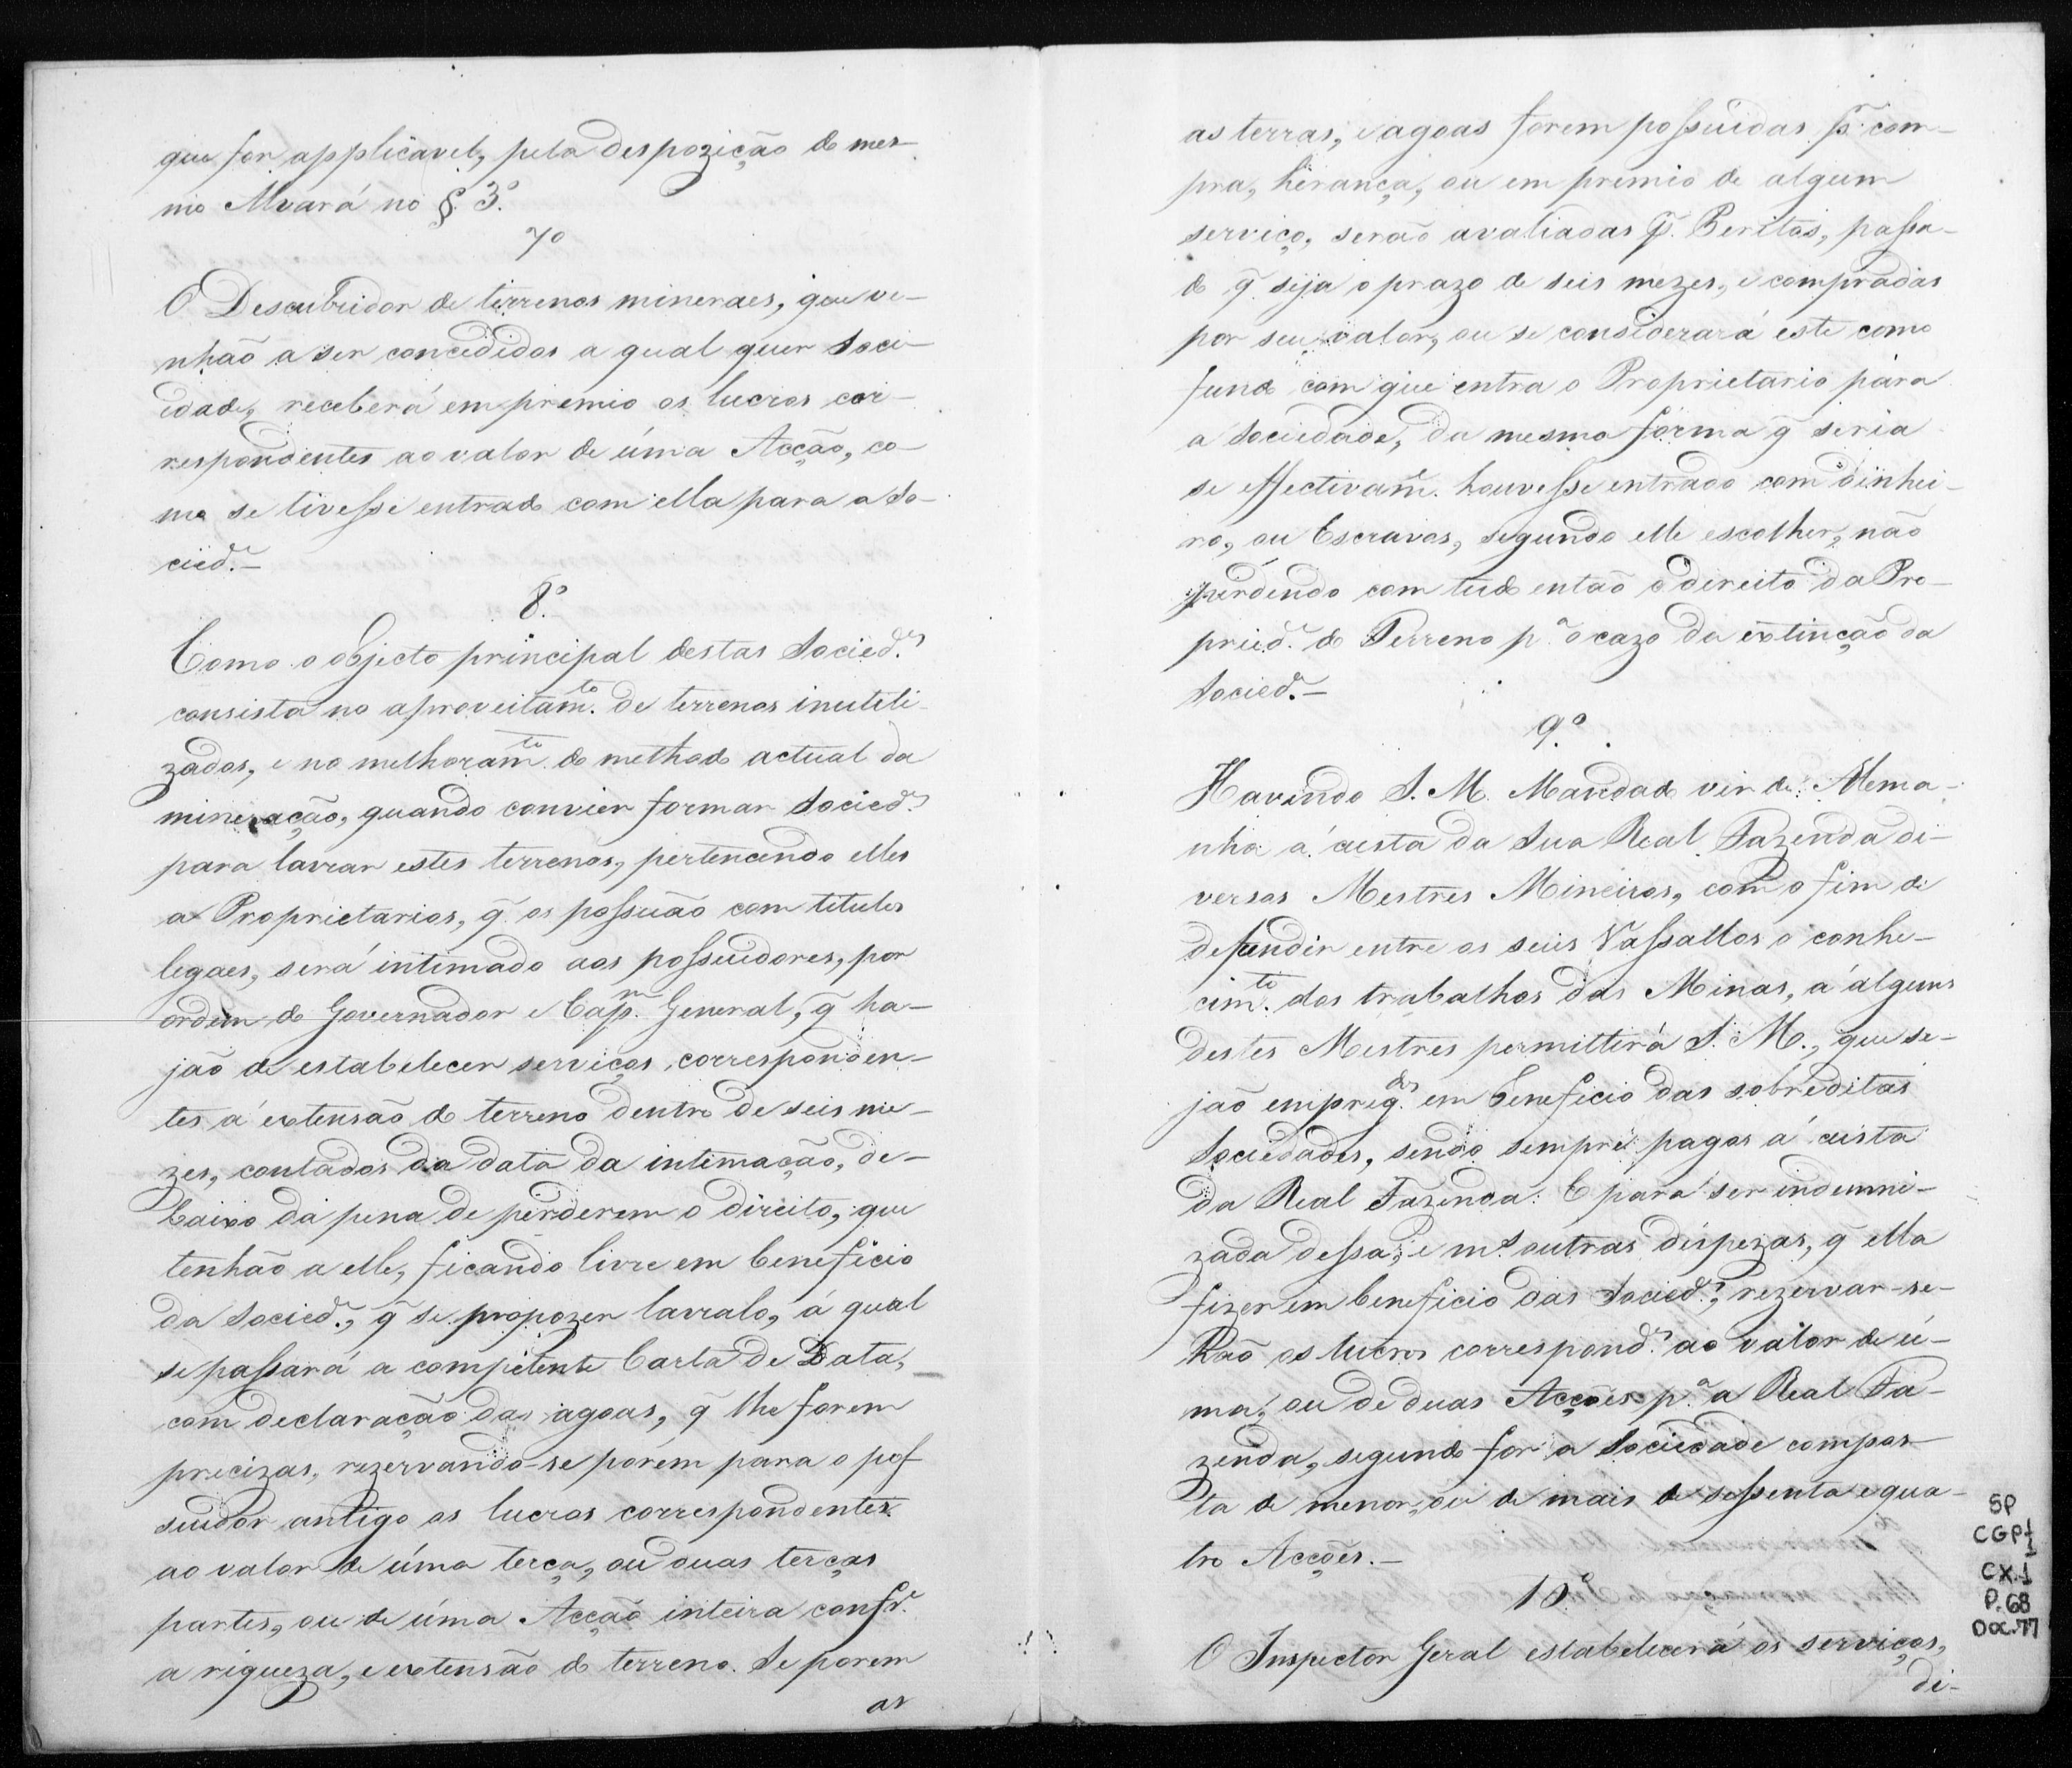 que for applicavel, pela despozição do mes-
mo Alvará no § 3.º
7º
O Descubridor de terrenos mineraes, que ve-
nhão a ser concedidos a qual quer Soci-
edade, receberá em premio os lucros cor-
respondentes ao valor de úma Acção, co-
mo se tivesse entrado com ella para a So-
cied.e—
8.º
Como o objecto principal destas Socied.es
consista no aproveitam.to de terrenos inutili-
zados, e no melhoram.to do methodo actual da
mineração, quando convier formar Socied.es
para lavrar estes terrenos, pertencendo elles
a Proprietarios, q̃ os possuão com titulos
legaes, será intimado aos possuidores, por
ordem do Governador e Cap.m General, q̃ ha-
jão de estabelecer serviços, corresponden-
tes á extensão do terreno dentro de seis me-
zes, contados da data da intimação, de-
baixo da pena de perderem o direito, que
tenhão a elle, ficando livre em beneficio
da Socied.e, q̃ se propozer lavralo, á qual
se passará a competente Carta de Data,
com declaração das agoas, q̃ lhe forem
precizas, rezervando-se porém para o pos
suidor antigo os lucros correspondentes
ao valor de úma terça, ou duas terças
partes, ou de úma Acção inteira conf.e
a riqueza, e extensão do terreno. Se porem
as
as terras, e agoas forem possuidas p.r com-
pra, herança, ou em premio de algum
serviço, serão avaliadas p.r Peritos, passa-
do q̃ seja o prazo de seis mezes, e compradas
por seu valor, ou se considerará este como
fundo com que entra o Proprietario para
a Sociedade, da mesma fórma q̃ seria
se effectivam.e houvesse entrado com dinhei-
ro, ou Escravos, segundo elle escolher, não
perdendo com tudo então o direito da Pro-
pried.e do Terreno p.a o cazo da extincção da
Socied.e—
9.º
Havendo S. M. Mandado vir de Alema-
nha á custa da Sua Real Fazenda di-
versos Mestres Mineiros, com o fim de
defundir entre os seus Vassallos o conhe-
cim.to dos trabalhos das Minas, a alguns
destes Mestres permittirá S. M., que se-
jão empreg.dos em beneficio das sobreditas
Sociedades, sendo sempre pagos á custa
da Real Fazenda: E para ser indemni-
zada dessa, e m.as outras despezas, q̃ ella
fizer em beneficio das Socied.es, rezervar-se-
hão os lucros correspond.es ao valor de ú-
ma, ou de duas Acções p.a a Real Fa-
zenda, segundo for a Sociedade compos-
ta de menos, ou de mais de sessenta e qua-
tro Acções.—
10º
O Inspector Geral estabelecerá os serviços,
di-
SP
CGP1
CX.1
P.68
DOC.77